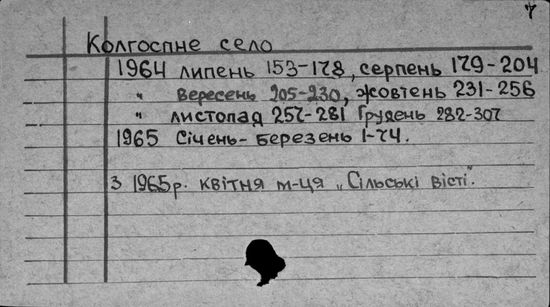 7
Колгоспне село
1964 липень 153-178, серпень 179-204
" вересень 205-230, жовтень 231-256
" листопад 257-281 Грудень 282-307
1965 Січень- березень 1-74.
З 1965р. квітня м-ця „Сільські вісті".